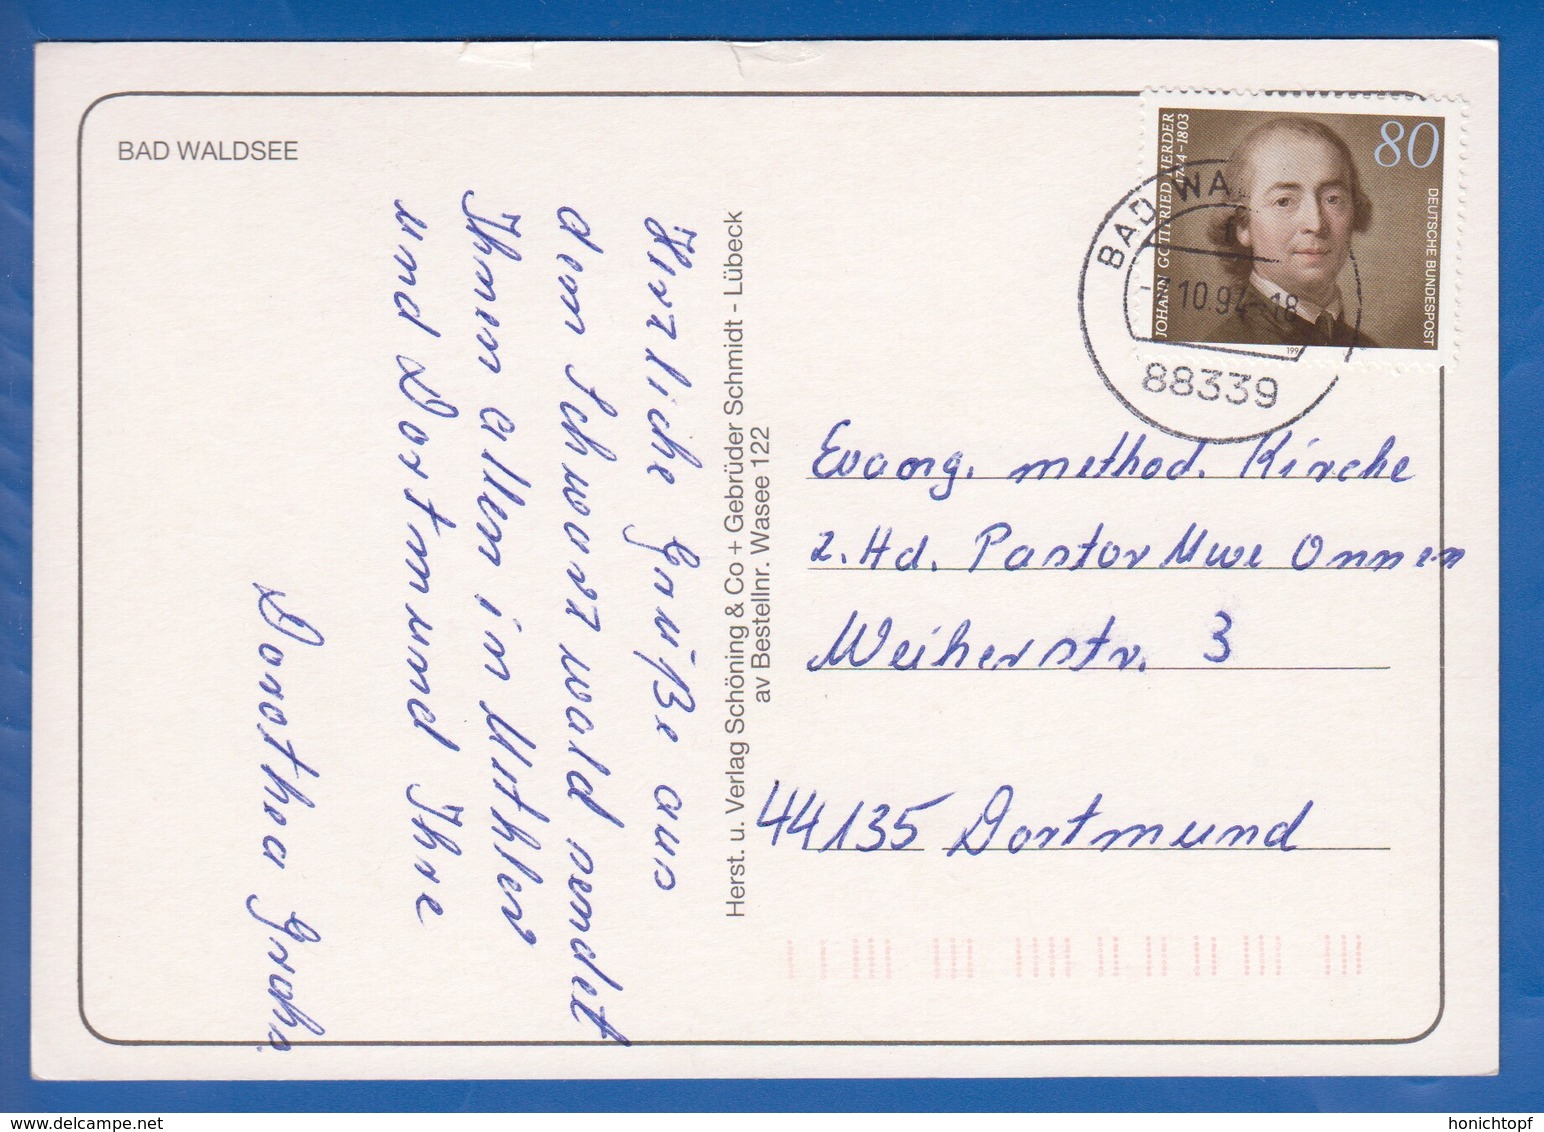 BAD WALDSEE
Herzliche Grüße aus
dem Schwarzwald sendet
Ihnen allen in
und Dortmund Ihre
Dorothea
Herst. u. Verlag Schöning & Co + Gebrüder Schmidt - Lübeck
av Bestellnr. Wasee 122
JOHANN GOTTFRIED HERDER
1744-1803
80
DEUTSCHE BUNDESPOST
199
BAD WA
10.94-18
88339
Evang. method. Kirche
z. Hd. Pastor Uwe Onnen
Weiherstr. 3
44135 Dortmund
honichtopf
delcampe.net